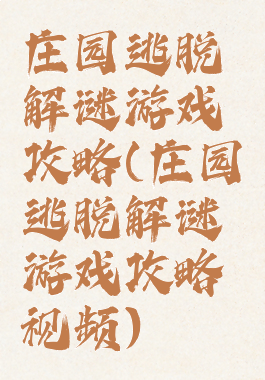 庄园逃脱
解谜游戏
攻略(庄园
逃脱解谜
游戏攻略
视频)